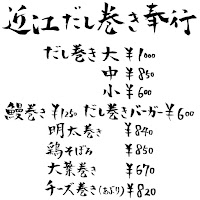 近江だし巻き奉行
だし巻き 大 ¥1000
中 ¥850
小 ¥600
鰻巻き ¥1250 だし巻きバーガー ¥600
明太巻き ¥840
鶏そぼろ ¥850
大葉巻き ¥670
チーズ巻き(あぶり) ¥820